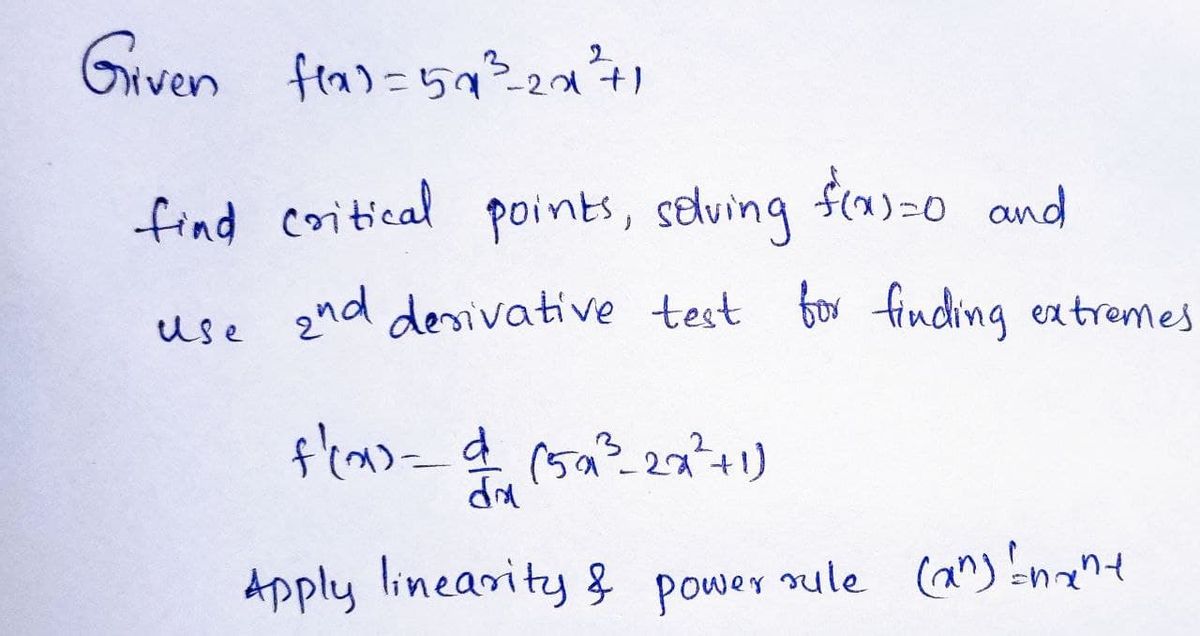 Given f(x) = 5x³-2x²+1
find critical points, solving f'(x)=0 and
use 2nd derivative test for finding extremes
f'(x) = d/dx (5x³-2x²+1)
Apply linearity & power rule (xⁿ)'=nxⁿ⁻¹